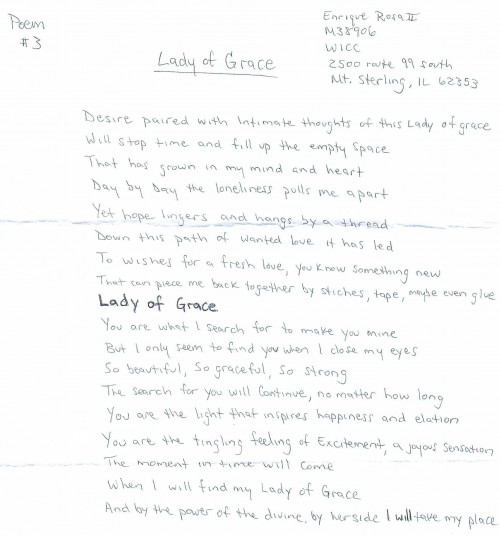 Poem
#3
Enrique Rosa II
M38906
WICC
2500 route 99 South
Mt. Sterling, IL 62353
Lady of Grace
Desire paired with Intimate thoughts of this Lady of grace
Will stop time and fill up the empty space
That has grown in my mind and heart
Day by Day the loneliness pulls me apart
Yet hope lingers and hangs by a thread
Down this path of wanted love it has led
To wishes for a fresh love, you know something new
That can piece me back together by stiches, tape, maybe even glue
Lady of Grace
You are what I search for to make you mine
But I only seem to find you when I close my eyes
So beautiful, So graceful, So strong
The search for you will Continue, no matter how long
You are the light that inspires happiness and elation
You are the tingling feeling of Excitement, a joyous Sensation
The moment in time will Come
When I will find my Lady of Grace
And by the power of the divine, by her side I will take my place